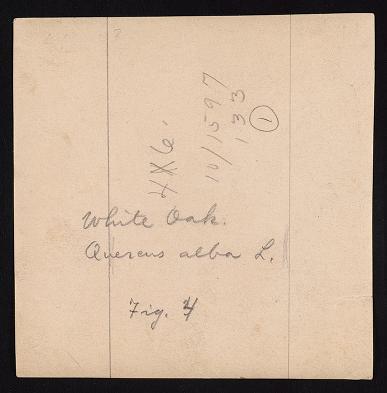 4X6.
10/1597
133
1
White Oak.
Quercus alba L.
Fig. 4